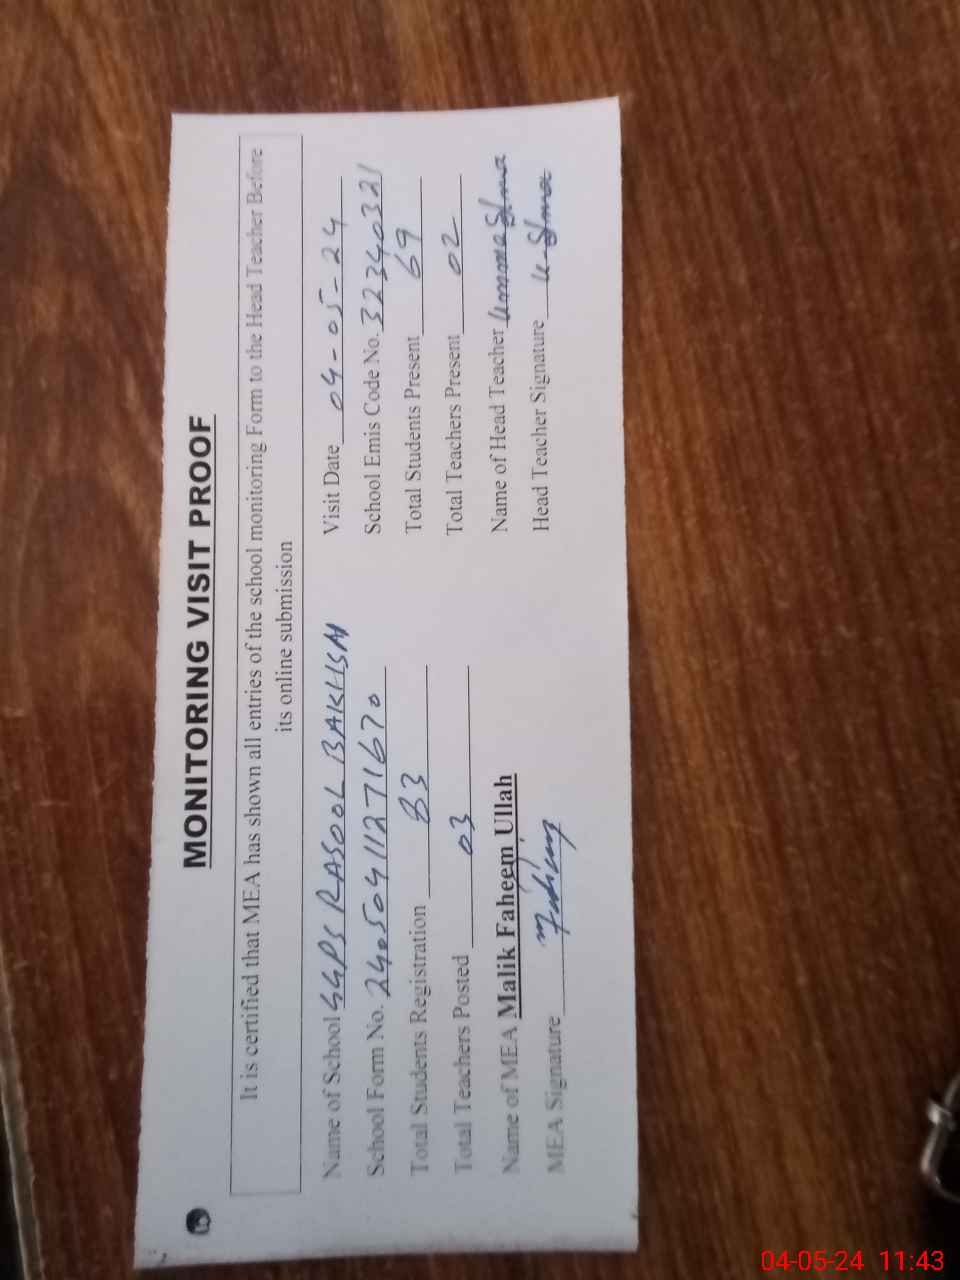 MONITORING VISIT PROOF
It is certified that MEA has shown all entries of the school monitoring Form to the Head Teacher Before
its online submission
Name of School GGPS RASOOL BAKHSH Visit Date 04-05-24
School Form No. 24050411271670 School Emis Code No. 32340321
Total Students Registration 83 Total Students Present 69
Total Teachers Posted 03 Total Teachers Present 02
Name of MEA Malik Faheem Ullah Name of Head Teacher
MEA Signature Head Teacher Signature
04-05-24 11:43